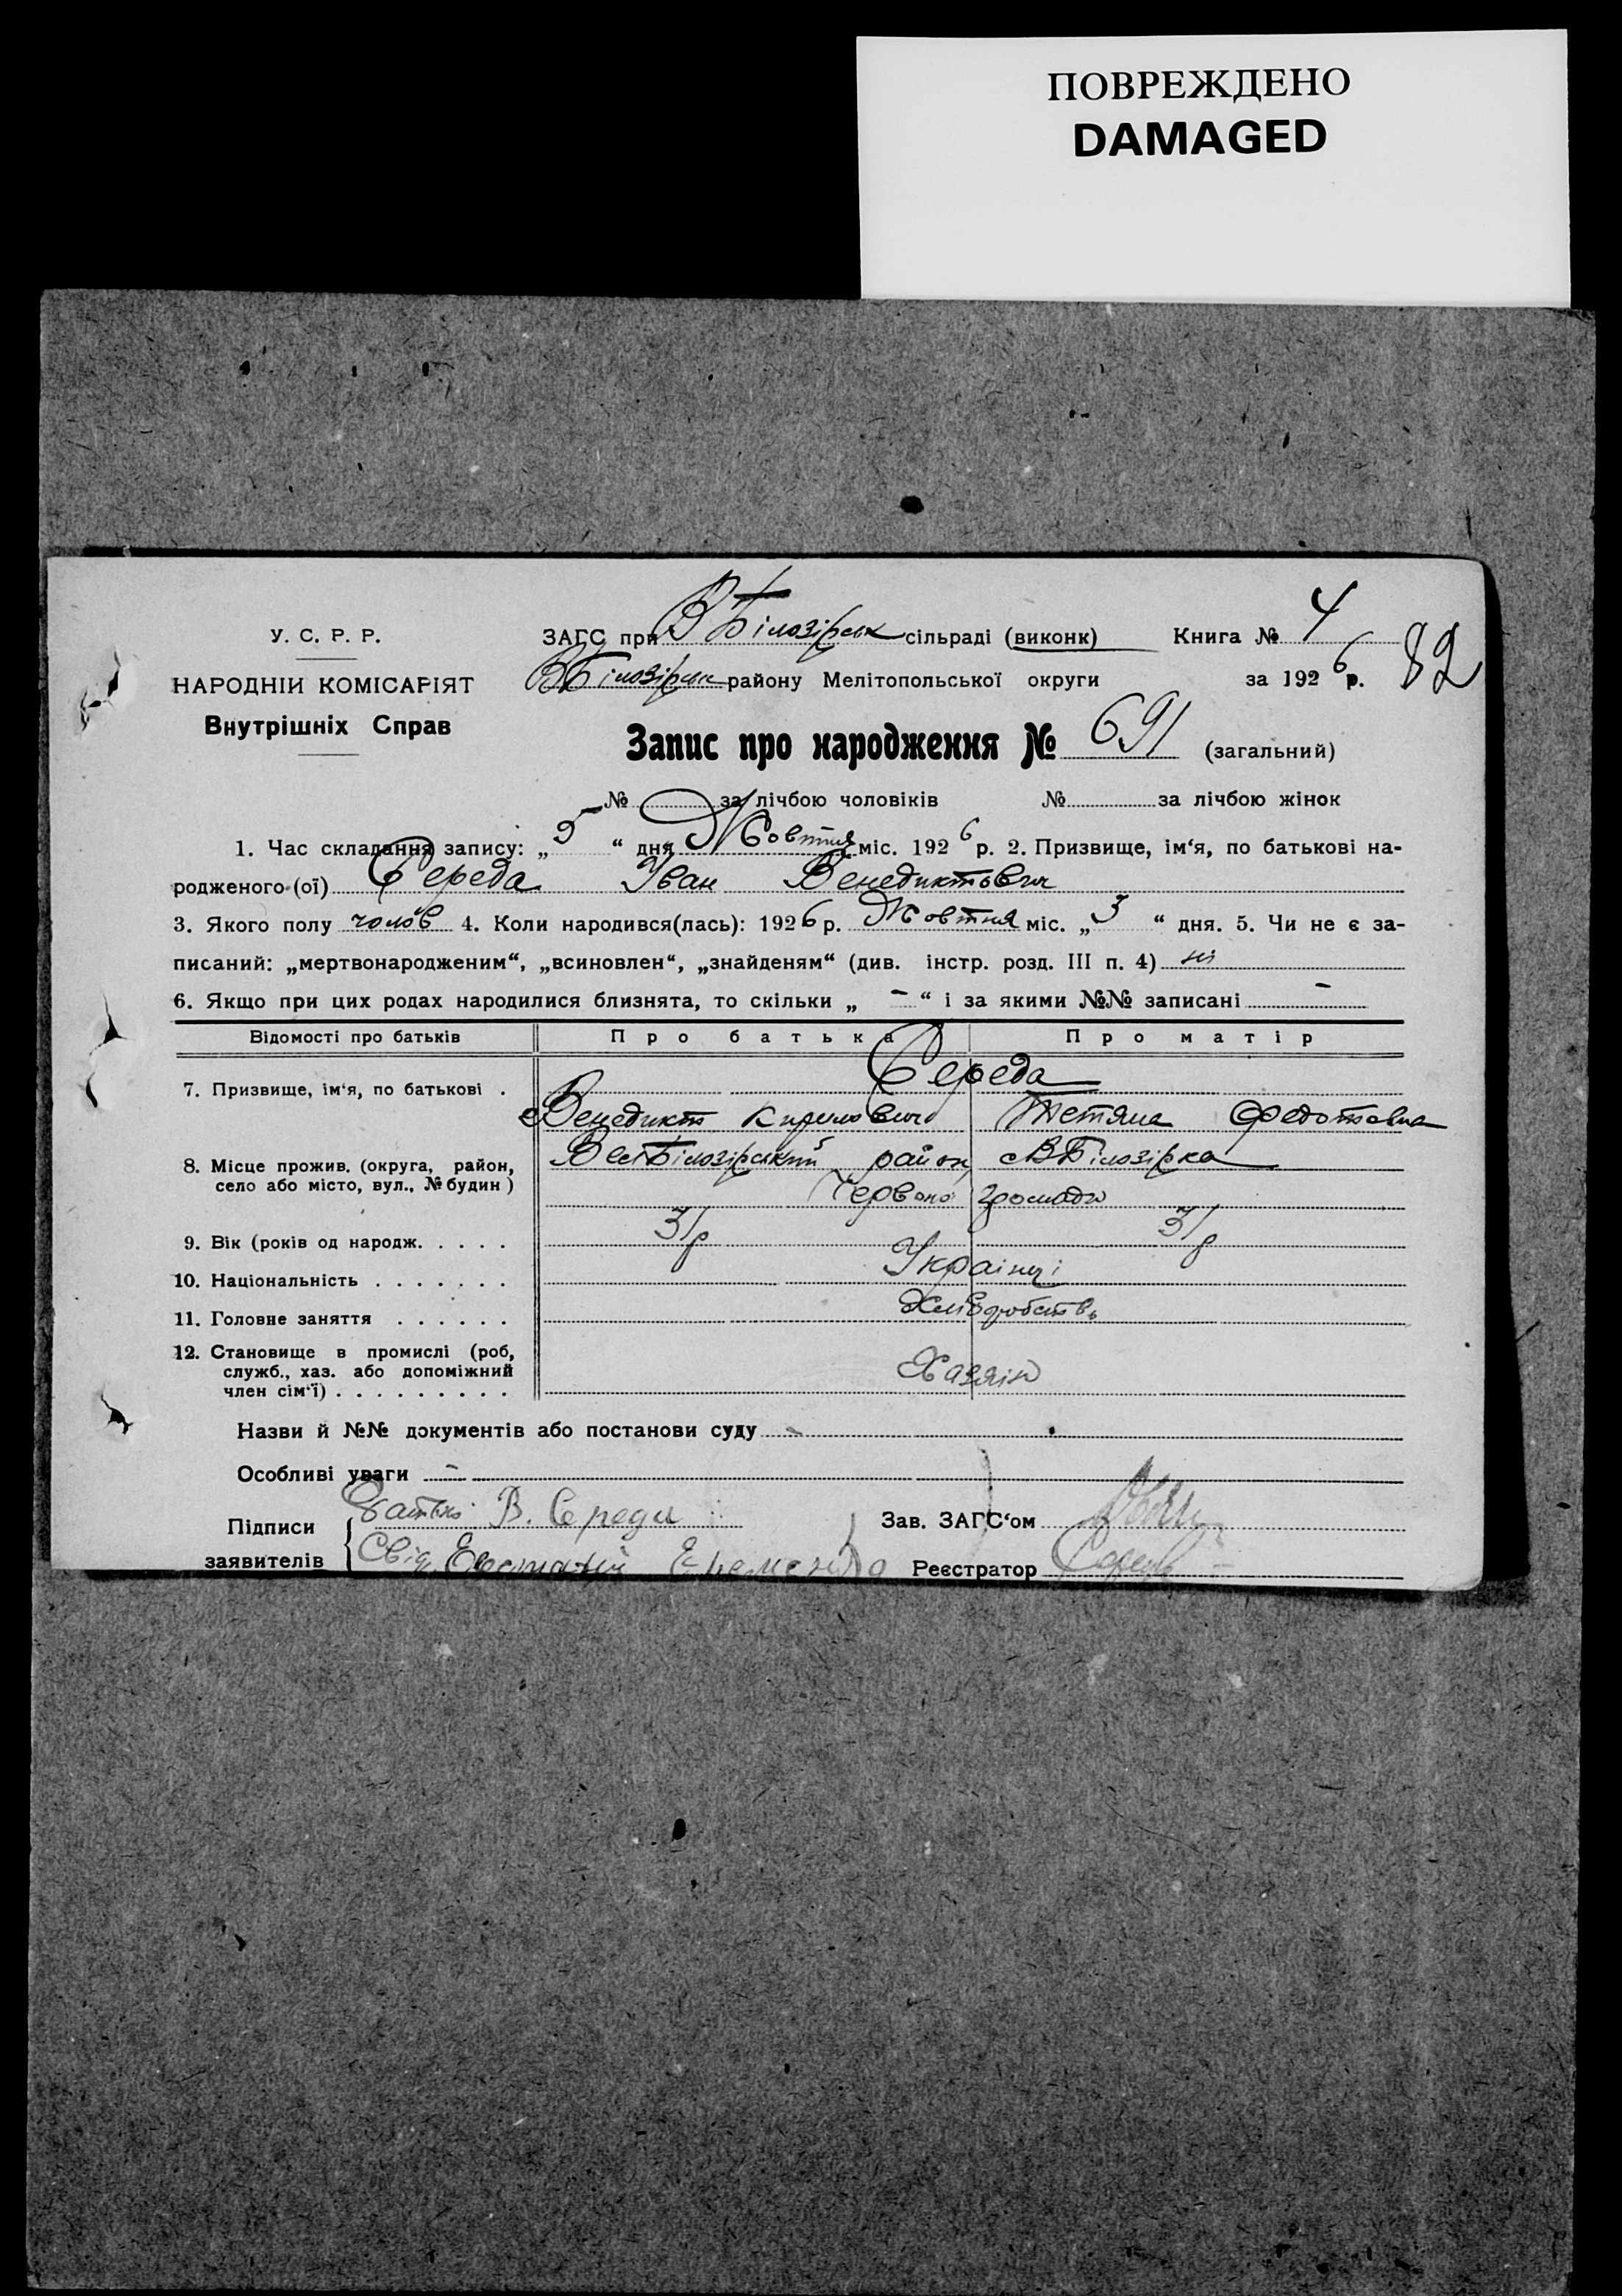 ПОВРЕЖДЕНО
DAMAGED
У. С. Р. Р.
НАРОДНІИ КОМІСАРІЯТ
Внутрішніх Справ
ЗАГС при В Білозірськ сільраді (виконк) Книга № 4
82
ВБілозірськ району Мелітопольської округи за 1926 р.
Запис про народження № 691 (загальний)
№ за лічбою чоловіків № за лічбою жінок
1. Час складання запису: „5“ дня Жовтня міс. 1926 р. 2. Призвище, ім‘я, по батькові на-
родженого (ої) Середа Іван Венедиктович
3. Якого полу чолов 4. Коли народився(лась): 1926 р. Жовтня міс. „3“ дня. 5. Чи не є за-
писаний: „мертвонародженим“, „всиновлен“, „знайденям“ (див. інстр. розд. III п. 4) ні
6. Якщо при цих родах народилися близнята, то скільки „ - “ і за якими №№ записані -
Відомості про батьків Про батька Про матір
7. Призвище, ім‘я, по батькові . Середа
Венедикт Кирилович Тетяна Федотовна
8. Місце прожив. (округа, район, ВелБілозірський район, с ВБілозірка
село або місто, вул., № будин) Червоно громади
9. Вік (років од народж. . . . . 31 р 31 р
10. Національність . . . . . . . Українці
11. Головне заняття . . . . . . Хліборобств
12. Становище в промислі (роб,
служб., хаз. або допоміжний Хазяін
член сім‘ї) . . . . . . . . .
Назви й №№ документів або постанови суду -
Особливі уваги -
Підписи Батько В. Середа Зав. ЗАГС‘ом
заявителів Свід. Еременко Реєстратор